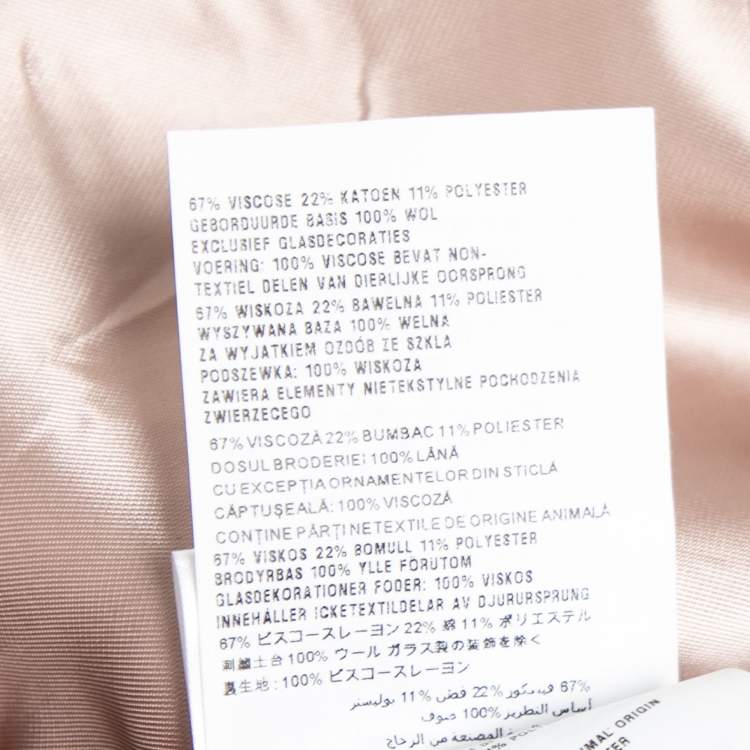 67% VISCOSE 22% KATOEN 11% POLYESTER
GEBORDUURDE BASIS 100% WOL
EXCLUSIEF GLASDECORATIES
VOERING: 100% VISCOSE BEVAT NON-
TEXTIEL DELEN VAN DIERLIJKE OORSPRONG
67% WISKOZA 22% BAWELNA 11% POLIESTER
WYSZYWANA BAZA 100% WELNA
ZA WYJATKIEM OZDÓB ZE SZKLA
PODSZEWKA: 100% WISKOZA
ZAWIERA ELEMENTY NIETEKSTYLNE POCHODZENIA
ZWIERZECEGO
67% VISCOZĂ 22% BUMBAC 11% POLIESTER
DOSUL BRODERIEI 100% LÂNĂ
CU EXCEPȚIA ORNAMENTELOR DIN STICLĂ
CĂPTUȘEALĂ: 100% VISCOZĂ
CONȚINE PĂRȚI NETEXTILE DE ORIGINE ANIMALĂ
67% VISKOS 22% BOMULL 11% POLYESTER
BRODYRBAS 100% YLLE FÖRUTOM
GLASDEKORATIONER FODER: 100% VISKOS
INNEHÅLLER ICKETEXTILDELAR AV DJURURSPRUNG
67% ビスコースレーヨン 22% 綿 11% ポリエステル
刺繍土台 100% ウール ガラス製の装飾を除く
裏生地 : 100% ビスコースレーヨン
67% فيسكوز 22% قطن 11% بوليستر
أساس التطريز 100% صوف
المصنعة من الزجاج
ORIGIN